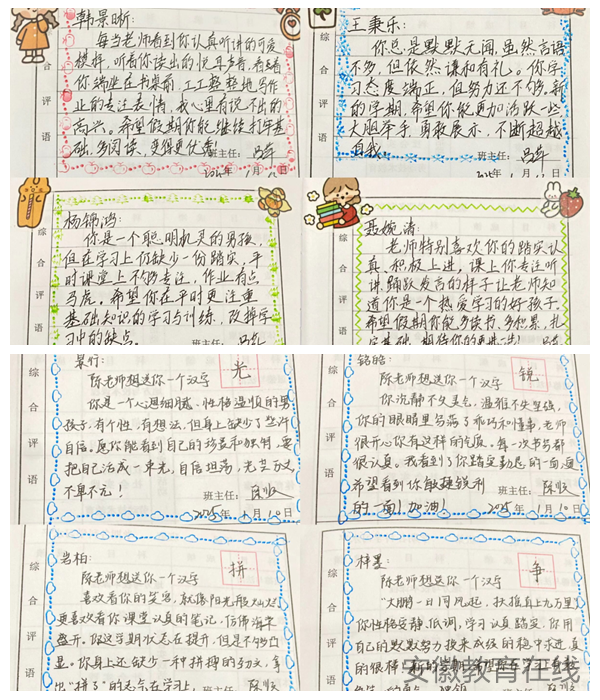 韩景昕:
每当老师看到你认真听讲的可爱
模样,听着你读出的悦耳声音,看着
你端坐在书桌前,工工整整地写作
业的专注表情,我心里有说不出的
高兴。希望假期你能继续打牢基
础,多阅读,变得更优秀!
班主任:吕萍
综合评语
王秉乐:
你总是默默无闻,虽然言语
不多,但依然谦和有礼。你学
习态度端正,但努力还不够,新
的学期,希望你能更加活跃一些
大胆举手,勇敢展示,不断超越
自我
班主任:吕萍
综合评语
杨锦鸿:
你是一个聪明机灵的男孩,
但在学习上你缺少一份踏实,平
时课堂上不够专注,作业有点
马虎。希望你在平时更注重
基础知识的学习与训练,改掉学
习中的缺点。
班主任:吕萍
综合评语
聂婉清:
老师特别喜欢你的踏实认
真、积极上进,课上你专注听
讲,踊跃发言的样子让老师知
道你是一个热爱学习的好孩子。
希望假期你能多读书、多积累,扎
综合评语
陈老师想送你一个汉字
光
你是一个心思细腻、性格温顺的男
孩子,有个性,有想法,但身上缺少了些许
自信。愿你能看到自己的珍贵和独特,要
把自己活成一束光,自信坦荡,光芒万丈,
不卑不亢!
班主任:
2025年1月10日
综合评语
铭皓:
陈老师想送你一个汉字
锐
你沉静不失灵气,温雅不失坚强,
你的眼睛里写满了乖巧和懂事,老师
很开心你有这样的气质。每一次书写都
很认真。我看到了你踏实勤恳的一面,更
希望看到你敏捷锐利
的一面!加油!
班主任:
2025年1月10日
综合评语
岩柏:
陈老师想送你一个汉字
拼
喜欢看你的笑容,就像阳光般灿烂
更喜欢看你课堂认真的笔记,信佛海幸
盛开。你这学期状态在提升,但是不够凸
显。你身上还缺少一种拼搏的劲头,拿
综合评语
梓墨:
陈老师想送你一个汉字
争
“大鹏一日同风起,扶摇直上九万里”
你性格安静、低调,学习认真踏实,你用
自己的默默努力换来成绩的稳中求进,真
的很棒!
安徽教育在线